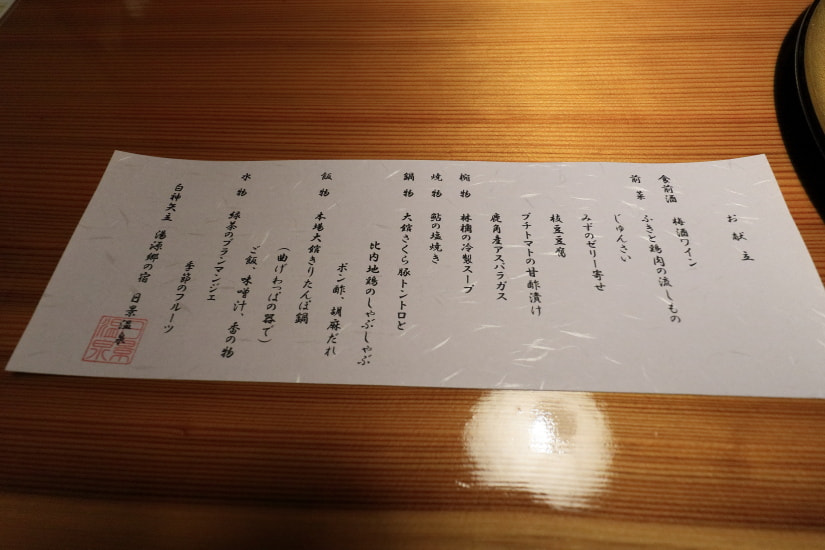 お献立
食前酒 梅酒ワイン
前菜 ふきと鶏肉の流しもの
じゅんさい
みずのゼリー寄せ
枝豆豆腐
プチトマトの甘酢漬け
鹿角産アスパラガス
椀物 林檎の冷製スープ
焼物 鮎の塩焼き
鍋物 大館さくら豚トントロと
比内地鶏のしゃぶしゃぶ
ポン酢、胡麻だれ
飯物 本場大館きりたんぽ鍋
(曲げわっぱの器で)
ご飯、味噌汁、香の物
水物 緑茶のブランマンジェ
季節のフルーツ
白神矢立 湯源郷の宿 日景温泉
日景温泉